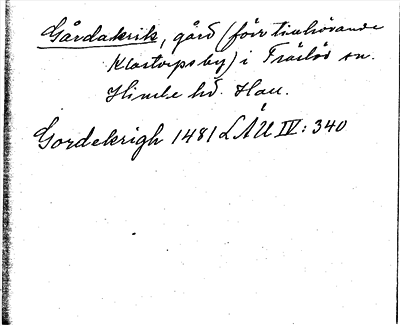 Gårdakrik, gård (förr tillhörande
Klastorps by) i Träslöv sn.
Himle hd. Hall.
Gordekrigh 1481 LÄU IV: 340